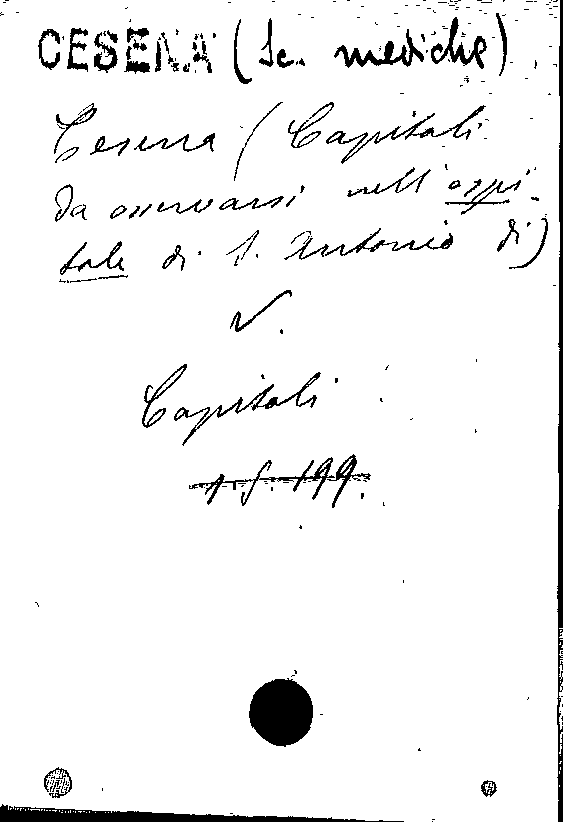 CESENA (Sc. mediche)
Cesena (Capitoli
da osservarsi nell'ospi-
tale di S. Antonio di)
V.
Capitoli
1.S.199.